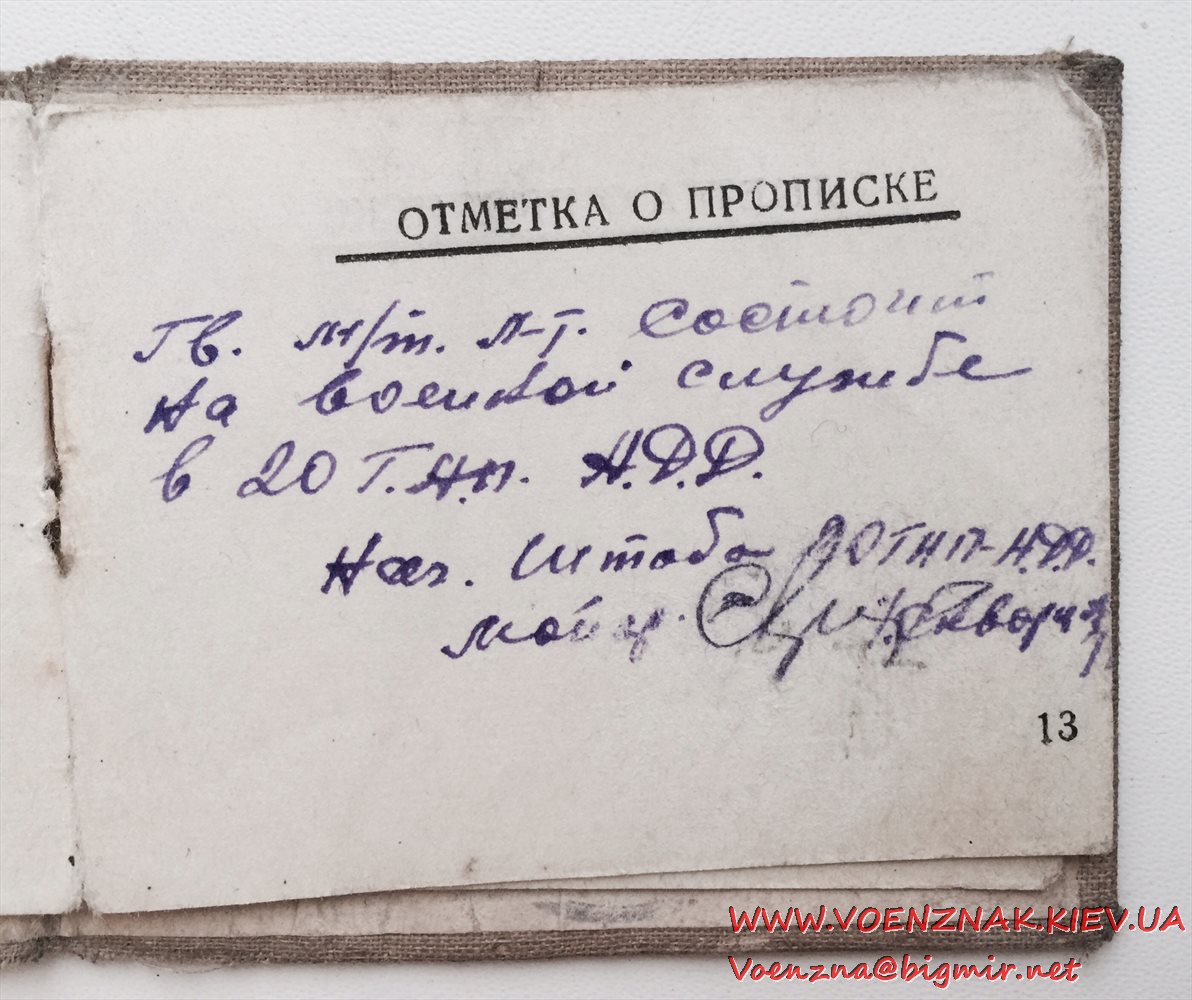 ОТМЕТКА О ПРОПИСКЕ
Гв. м/т. л-т. состоит
на военной службе
в 20 Г.А.П. А.Д.Д.
Нач. Штаба
майор.
13
WWW.VOENZNAK.KIEV.UA
Voenzna@bigmir.net